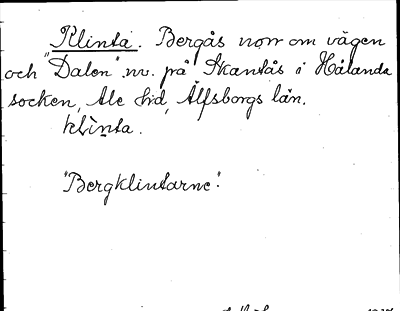 Klinta. Bergås norr om vägen
och "Dalen" nv. på Skantås i Hålanda
socken, Ale hd, Älfsborgs län.
klinta.
"Bergklintarne".